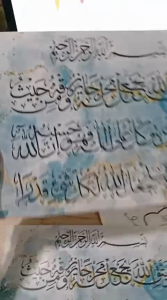 بسم الله الرحمن الرحيم
الله يجعل له مخرجا ويرزقه من حيث
على الله فهو حسبه إن الله
جعل الله لكل شيء قدرا
بسم الله الرحمن الرحيم
الله يجعل له مخرجا ويرزقه من حيث